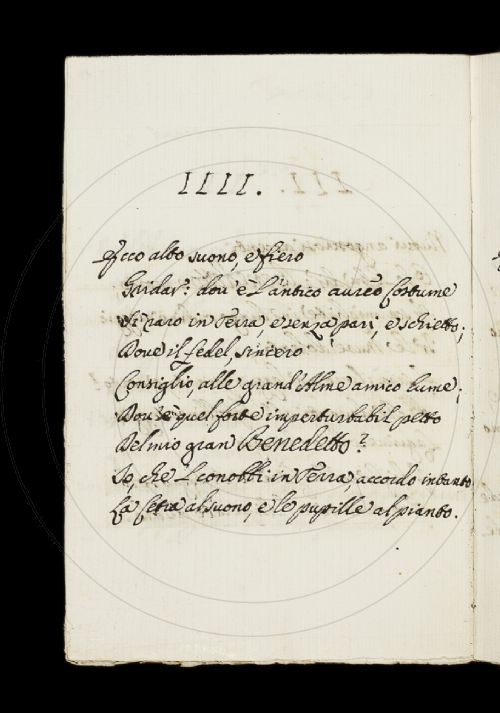 IIII.
Ecco alto suono, e fiero
Gridar: dov' è l'antico aureo Costume
Sì raro in Terra, e senza pari, e schietto;
Dove il fedel, sincero
Consiglio, alle grand'Alme amico lume;
Dov' è quel forte imperturbabil petto
Del mio gran Benedetto?
Io, che l conobbi in Terra, accordo intanto
La Cetra al suono, e le pupille al pianto.